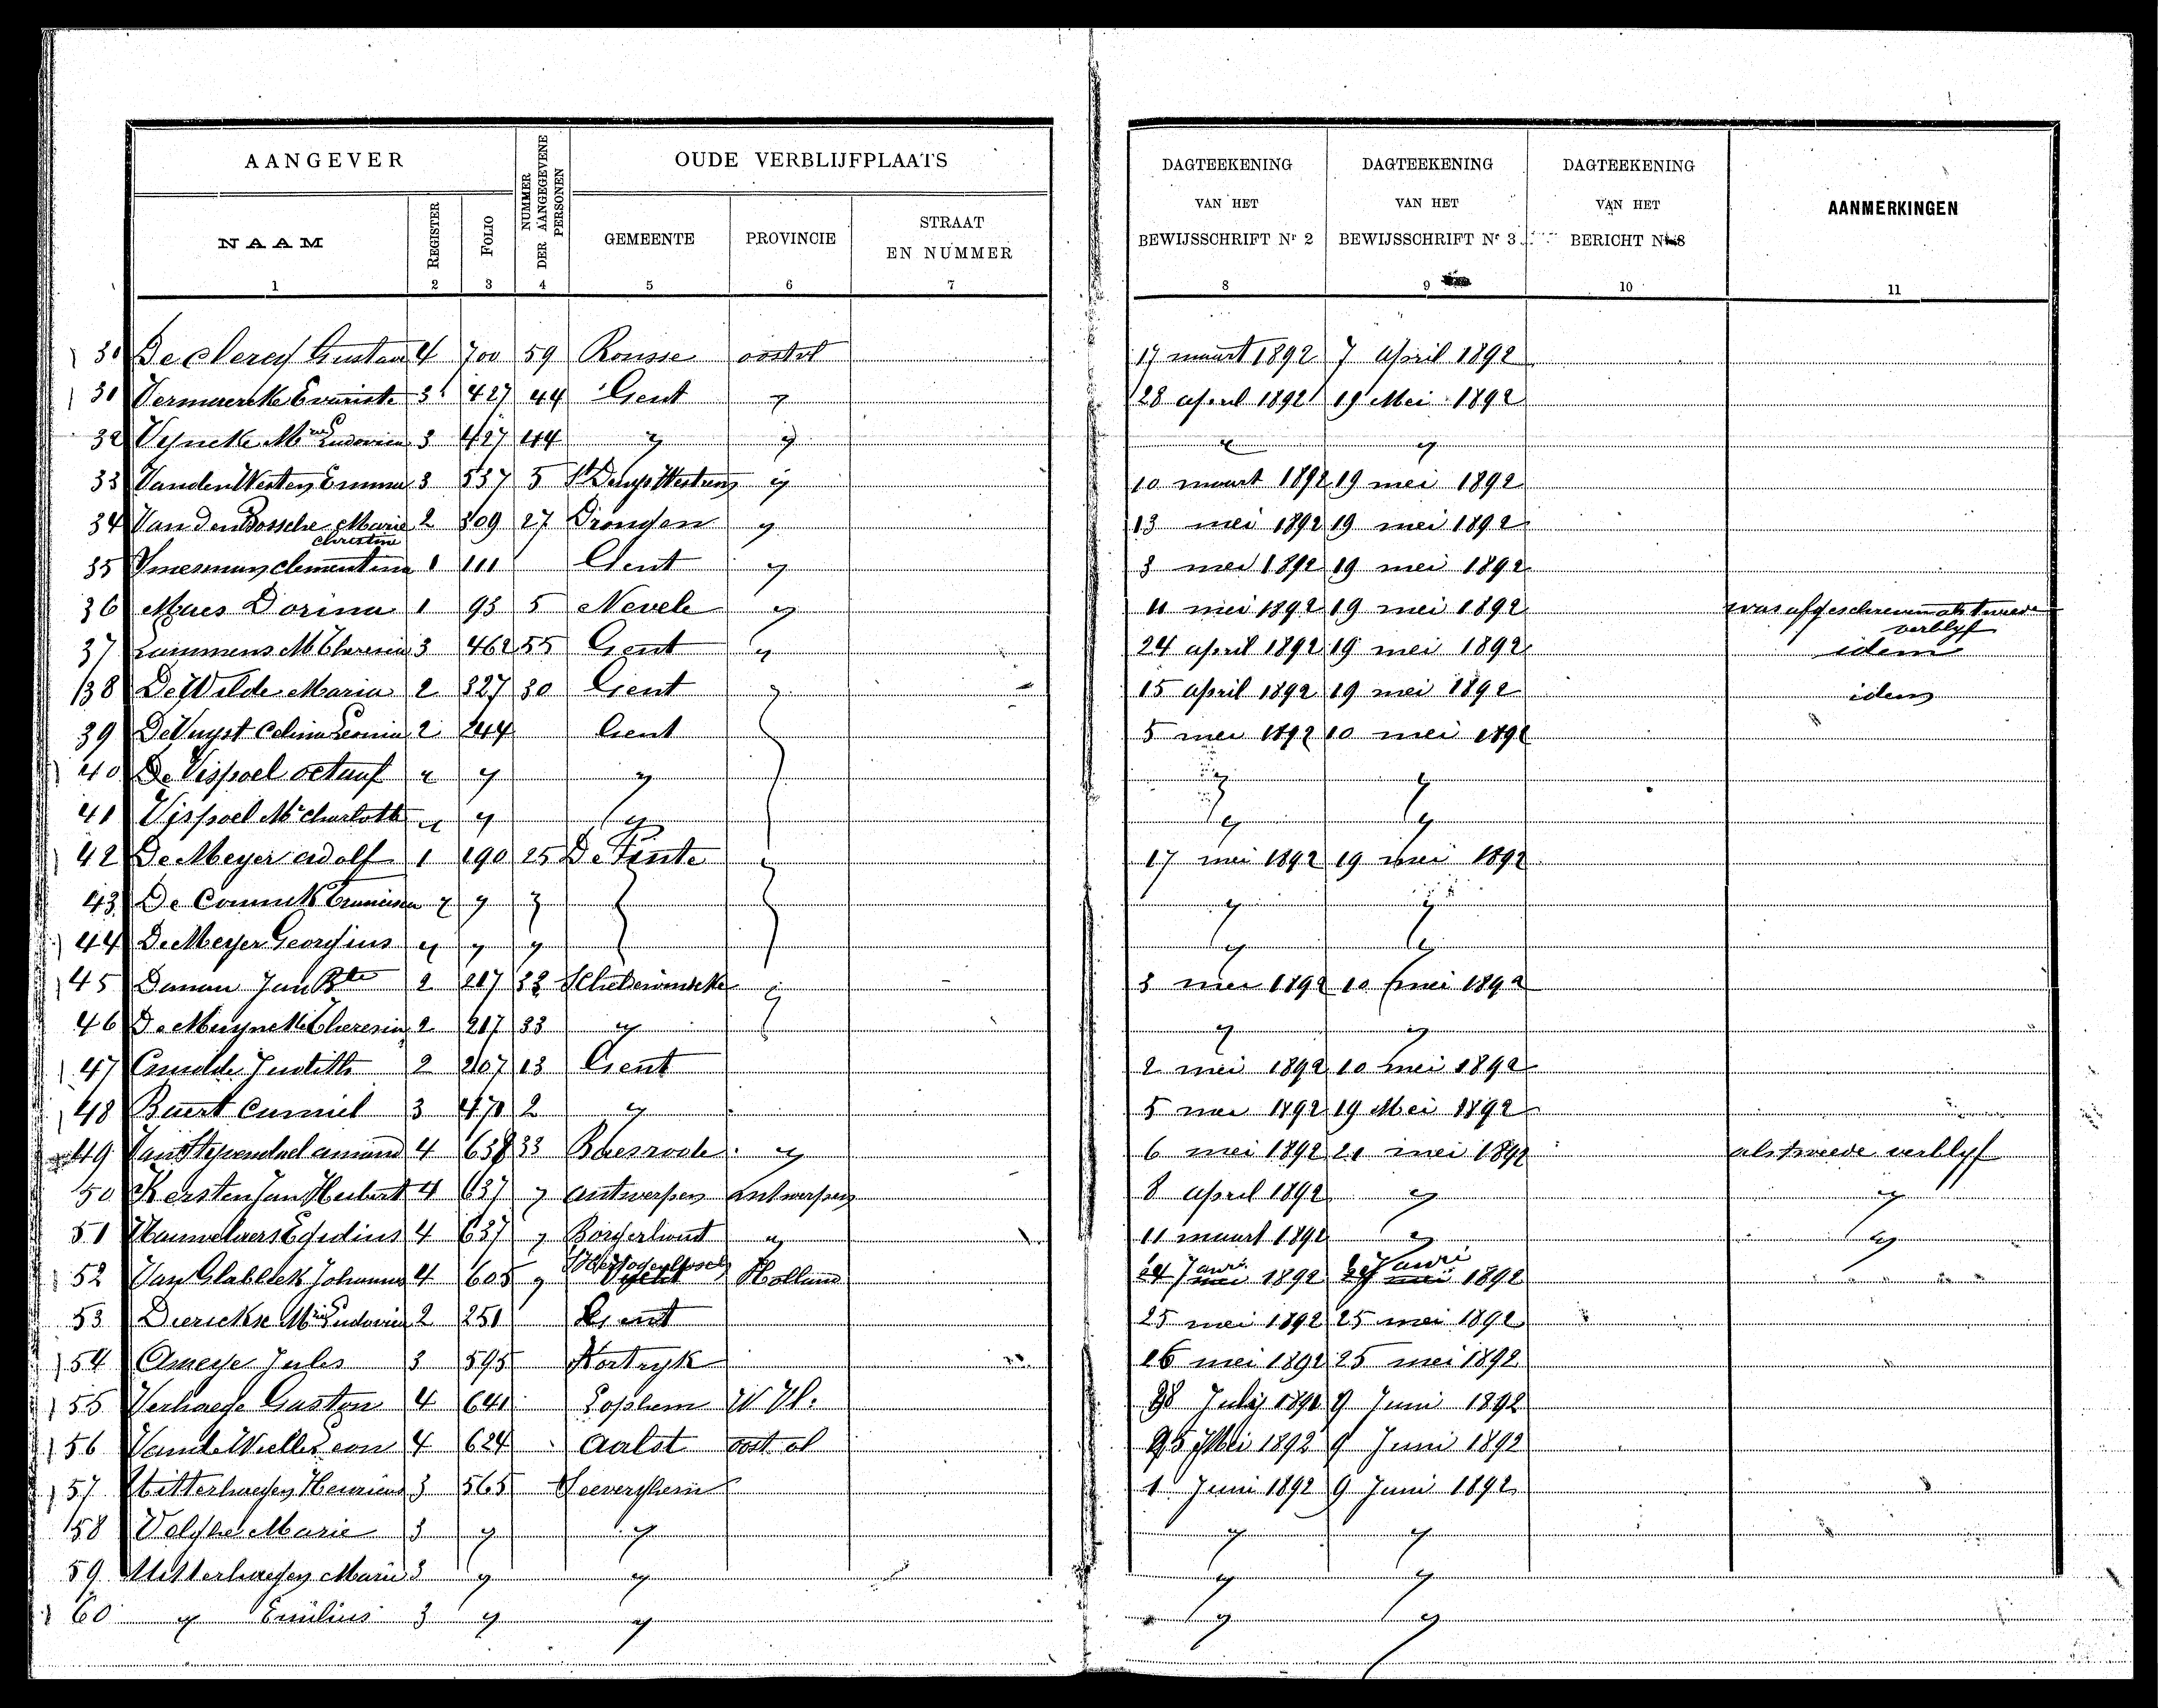 AANGEVER NUMMER DER AANGEGEVENE PERSONEN OUDE VERBLIJFPLAATS DAGTEEKENING VAN HET BEWIJSSCHRIFT Nr 2 DAGTEEKENING VAN HET BEWIJSSCHRIFT Nr 3 DAGTEEKENING VAN HET BERICHT Nr 8 AANMERKINGEN
NAAM REGISTER FOLIO GEMEENTE PROVINCIE STRAAT EN NUMMER
1 2 3 4 5 6 7 8 9 10 11
30 De Clercq Gustav 4 700 59 Ronsse oostvl 17 maart 1892 7 April 1892
31 Vermeereke Evariste 3 427 44 Gent " 28 april 1892 19 Mei 1892
32 Vyncke Mie Ludovica 3 427 44 " " " "
33 Vanden Westen Emma 3 537 5 St Denys Westrem " 10 maart 1892 19 mei 1892
34 Van Den Bossche Marie 2 309 27 Drongen " 13 mei 1892 19 mei 1892
christine
35 Ymesman clementina 1 111 Gent " 3 mei 1892 19 mei 1892
36 Maes Dorina 1 93 5 Nevele " 11 mei 1892 19 mei 1892 was afgeschreven als tweede
verblyf
37 Lammens M Theresia 3 462 55 Gent " 24 april 1892 19 mei 1892 idem
38 De Wilde Maria 2 327 30 Gent " 15 april 1892 19 mei 1892 idem
39 De Vuyst Celina Leonia 2 244 Gent 5 mei 1892 10 mei 1892
40 De Vispoel octaaf " " " " "
41 Vispoel Me charlotte " " " " "
42 De Meyer adolf 1 190 25 De Pinte " 17 mei 1892 19 mei 1892
43 De Connick Francisca " " " " "
44 De Meyer Georgius " " " " "
45 Danau Jan Bte 2 217 33 Schelderwindeke " 3 mei 1892 10 mei 1892
46 De Muynck Theresia 2 217 33 " " "
47 Judith 2 207 13 Gent 2 mei 1892 10 mei 1892
48 Baert Camiel 3 470 2 " 5 mei 1892 19 Mei 1892
49 Van Stependael amand 4 638 33 Baesrode " 6 mei 1892 21 mei 1892 als tweede verblyf
50 Kersten Jan Hubert 4 637 " antwerpen antwerpen 8 april 1892 " "
51 Hauwelaers Egidius 4 637 " Borgerhout " 11 maart 1892 " "
52 Van Glabbeek Johannes 4 605 " S'Hertogenbosch Holland 24 Janri 1892 27 Janri 1892
53 Dierickx Mie Ludovica 2 251 Gent 25 mei 1892 25 mei 1892
54 Ameye Jules 3 595 Kortryk 16 mei 1892 25 mei 1892
55 Verhaege Gaston 4 641 Lophem W Vl. 28 July 1891 9 Juni 1892
56 Vande Wielle Leon 4 624 Aalst oost vl 25 Mei 1892 9 Juni 1892
57 Uitterhaegen Henricus 3 565 Seeverghem 1 Juni 1892 9 Juni 1892
58 Volghe Marie 3 " " " "
59 Uitterhaegen Marie 3 " " " "
60 " Emilius 3 " " " "